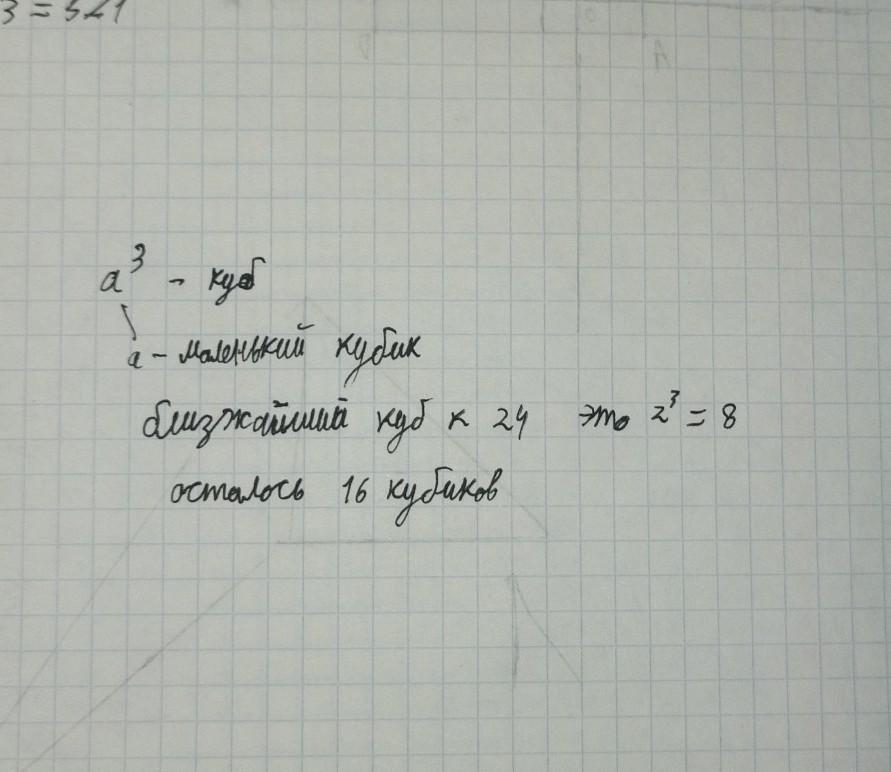 3 = 321
a³ - куб
a - маленький кубик
ближайший куб к 24 это 2³ = 8
осталось 16 кубиков